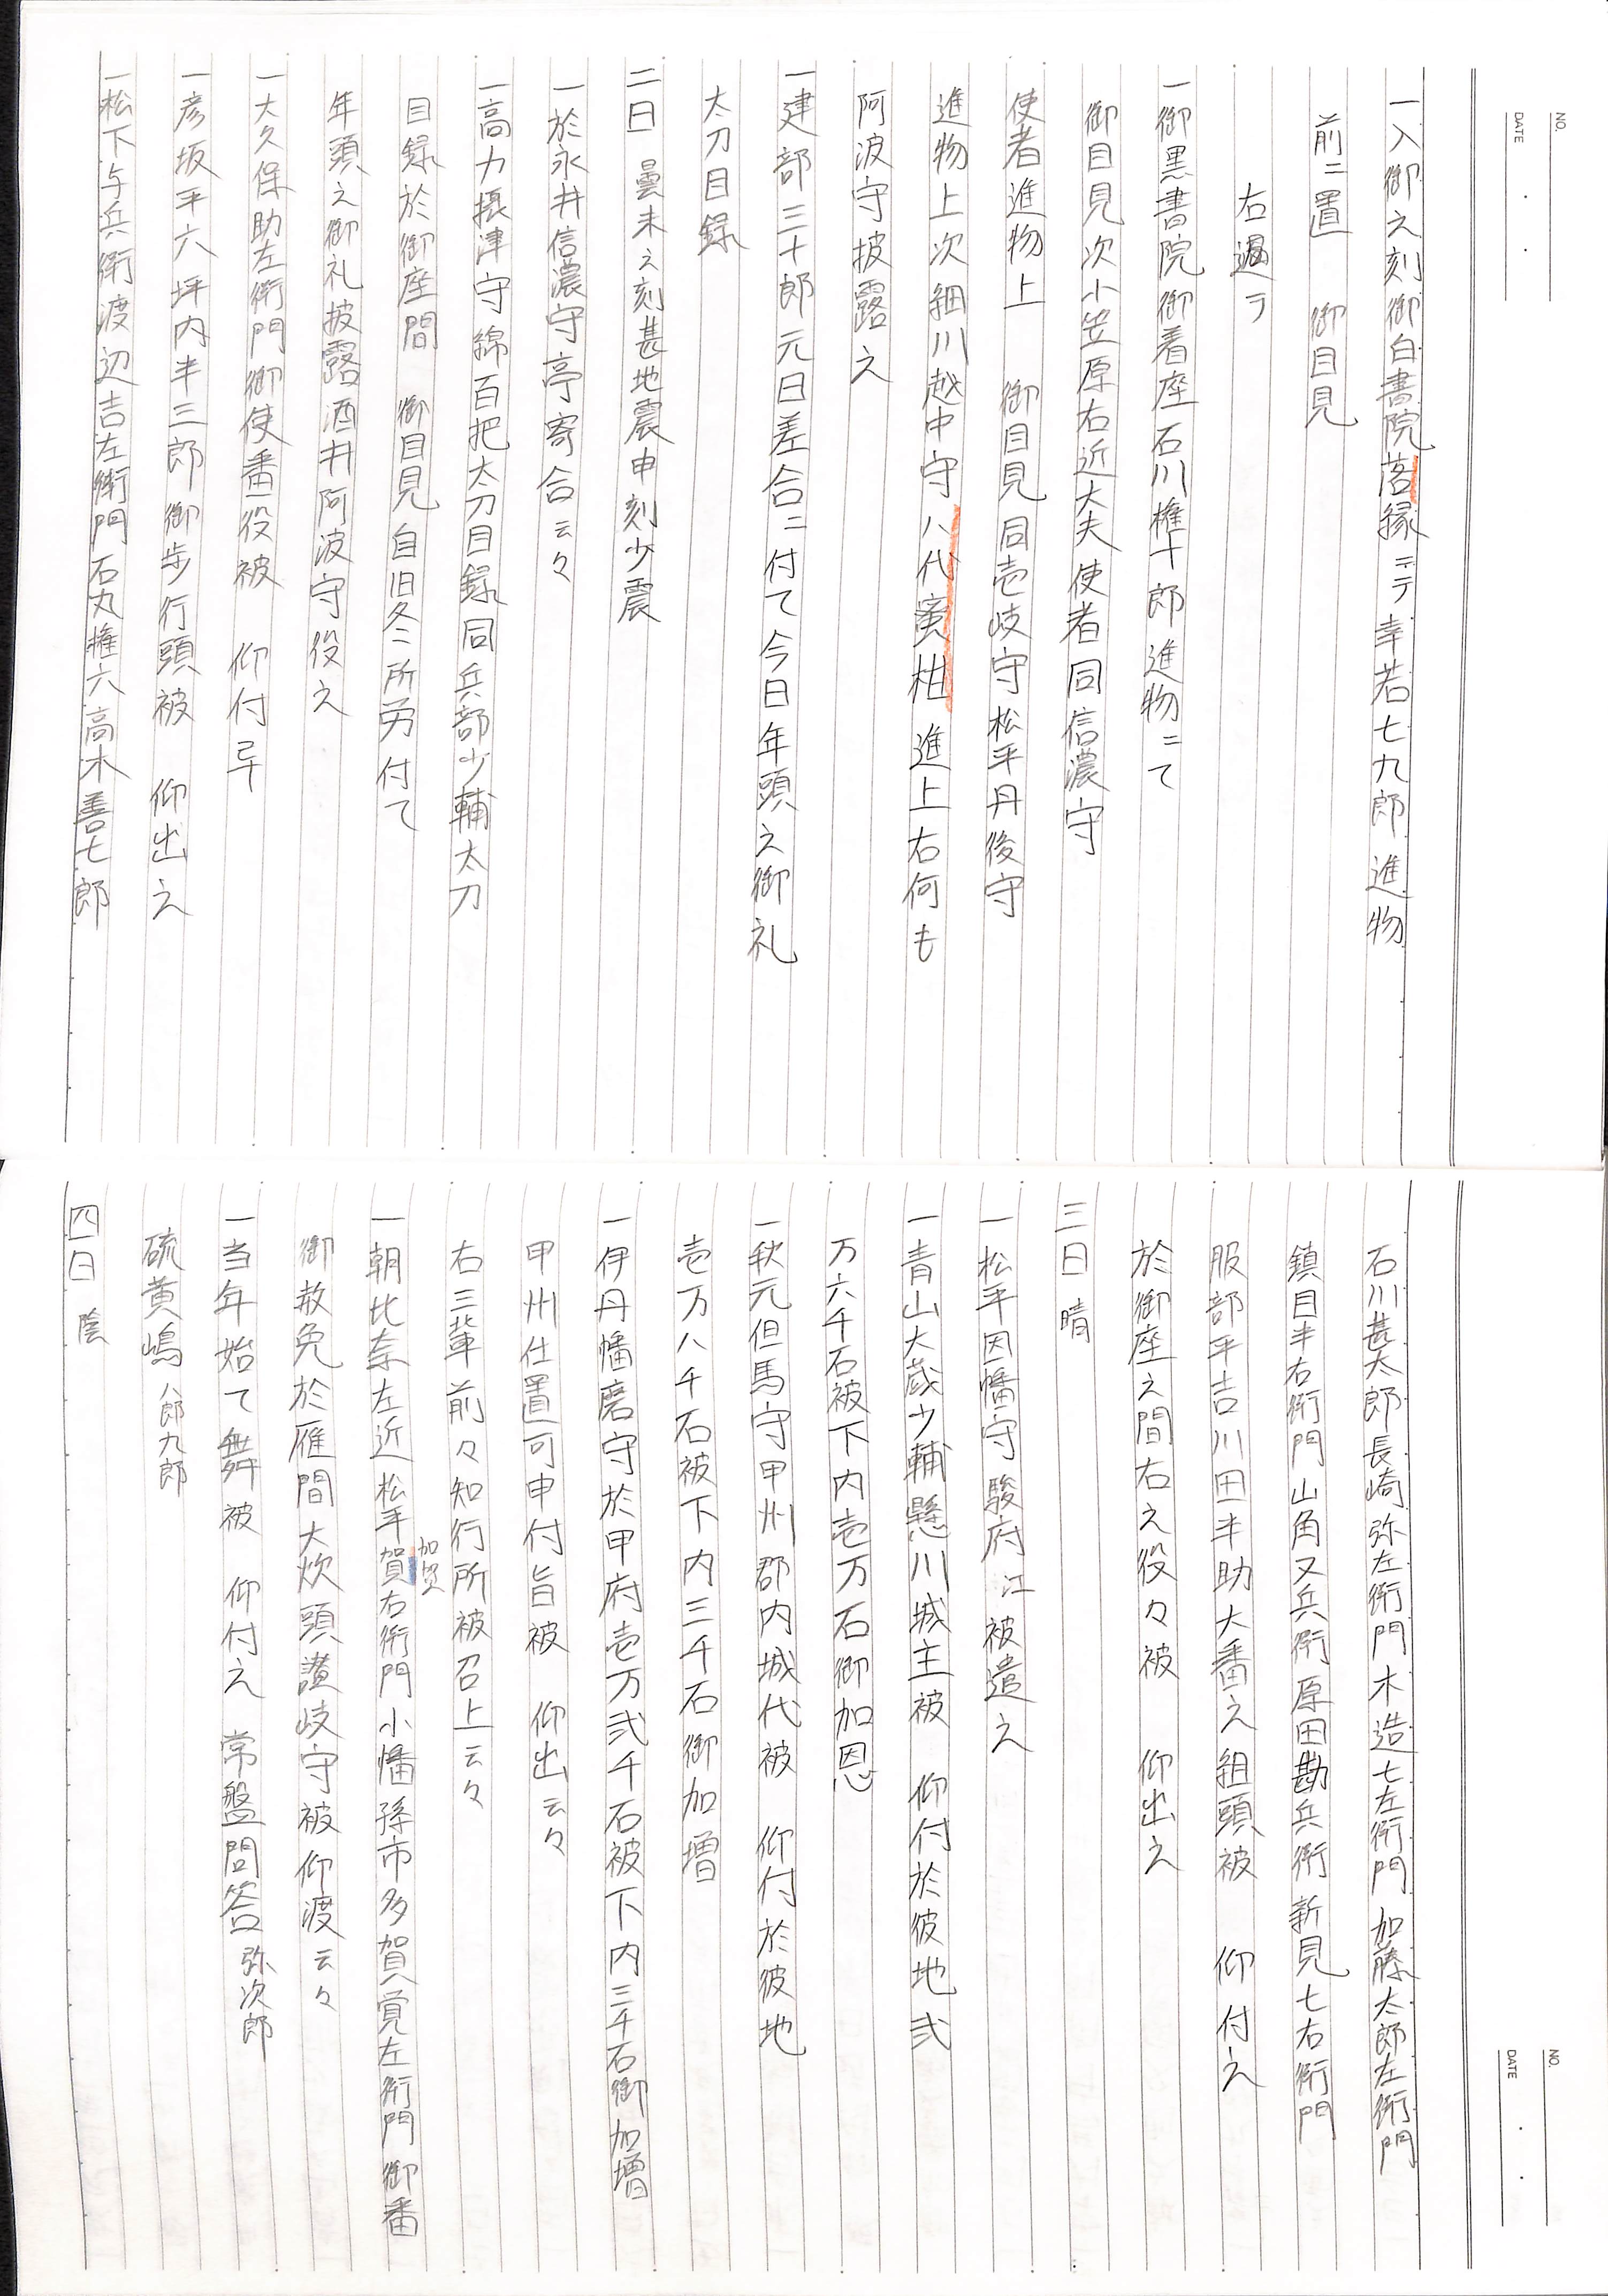 NO.
DATE
一入御之刻御白書院落縁ニテ幸若七九郎進物
前ニ置 御目見
右過テ
一御黒書院御着座石川権十郎進物ニて
御目見次小笠原右近大夫使者同信濃守
使者進物上 御目見同壱岐守松平丹後守
進物上次細川越中守八代蜜柑進上右何も
阿波守披露之
一建部三十郎元日差合ニ付て今日年頭之御礼
太刀目録
二日 曇未之刻甚地震申刻少震
一於永井信濃守亭寄合云々
一高力摂津守綿百把太刀目録同兵部少輔太刀
目録於御座間 御目見自旧冬ニ所労付て
年頭之御礼披露酒井阿波守役之
一大久保助左衛門御使番役被 仰付
一彦坂平六坪内半三郎御歩行頭被 仰出之
一松下与兵衛渡辺吉左衛門石丸権六高木善七郎
NO.
DATE
石川甚太郎長崎弥左衛門木造七左衛門加藤太郎左衛門
鎮目半右衛門山角又兵衛原田勘兵衛新見七右衛門
服部平吉川田半助大番之組頭被 仰付之
於御座之間右之役々被 仰出之
三日 晴
一松平因幡守駿府江被遣之
一青山大蔵少輔懸川城主被 仰付於彼地弐
万六千石被下内壱万石御加恩
一秋元但馬守甲州郡内城代被 仰付於彼地
壱万八千石被下内三千石御加増
一伊丹幡磨守於甲府壱万弐千石被下内三千石御加増
甲州仕置可申付旨被 仰出云々
右三輩前々知行所被召上云々
一朝比奈左近松平賀右衛門小幡孫市多賀覚左衛門御番
加賀
御赦免於雁間大炊頭讃岐守被仰渡云々
一当年始て舞被 仰付之 常盤問答 弥次郎
硫黄嶋 八郎九郎
四日 陰